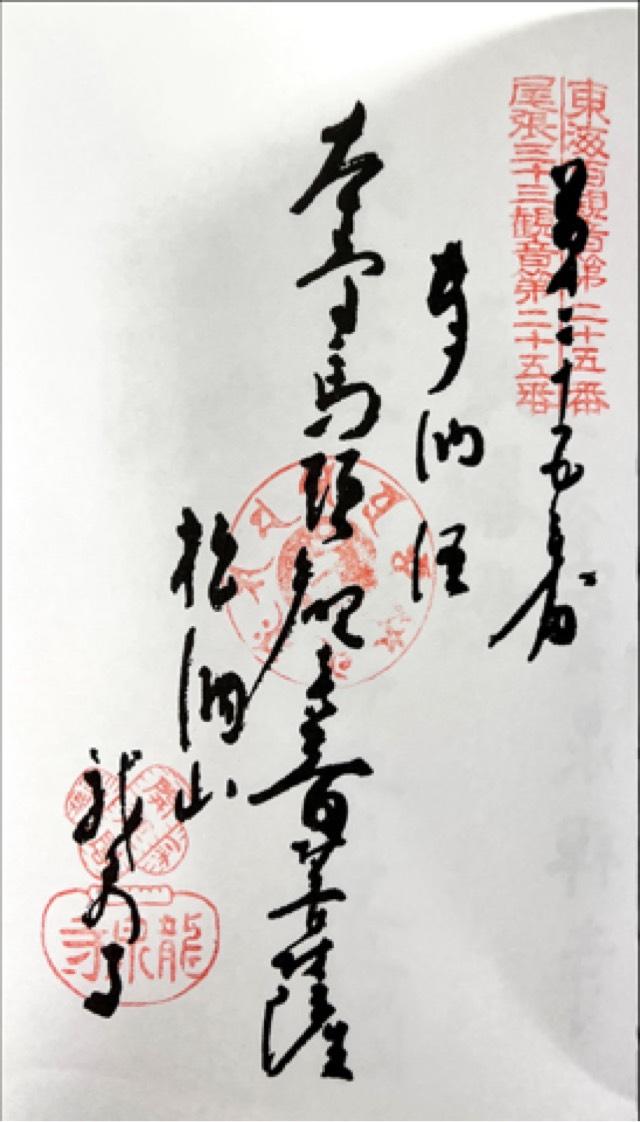 東海百観音第二十五番
尾張三十三観音第二十五番
二十五
奉納経
馬頭観世音菩薩
松洞山
龍泉寺
龍泉寺